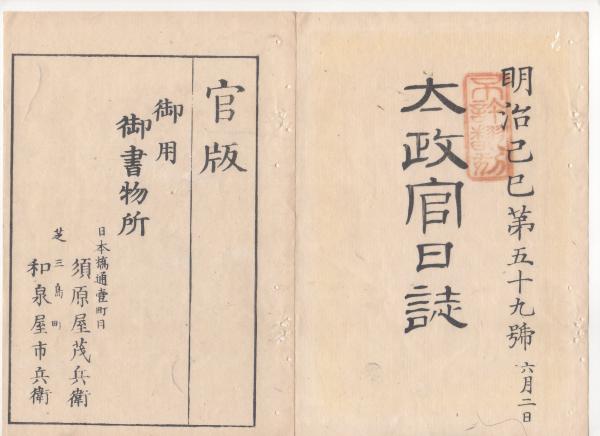 明治己巳第五十九號 六月二日
太政官日誌
官版
御用
御書物所
日本橋通壹町目
須原屋茂兵衛
芝三島町
和泉屋市兵衛